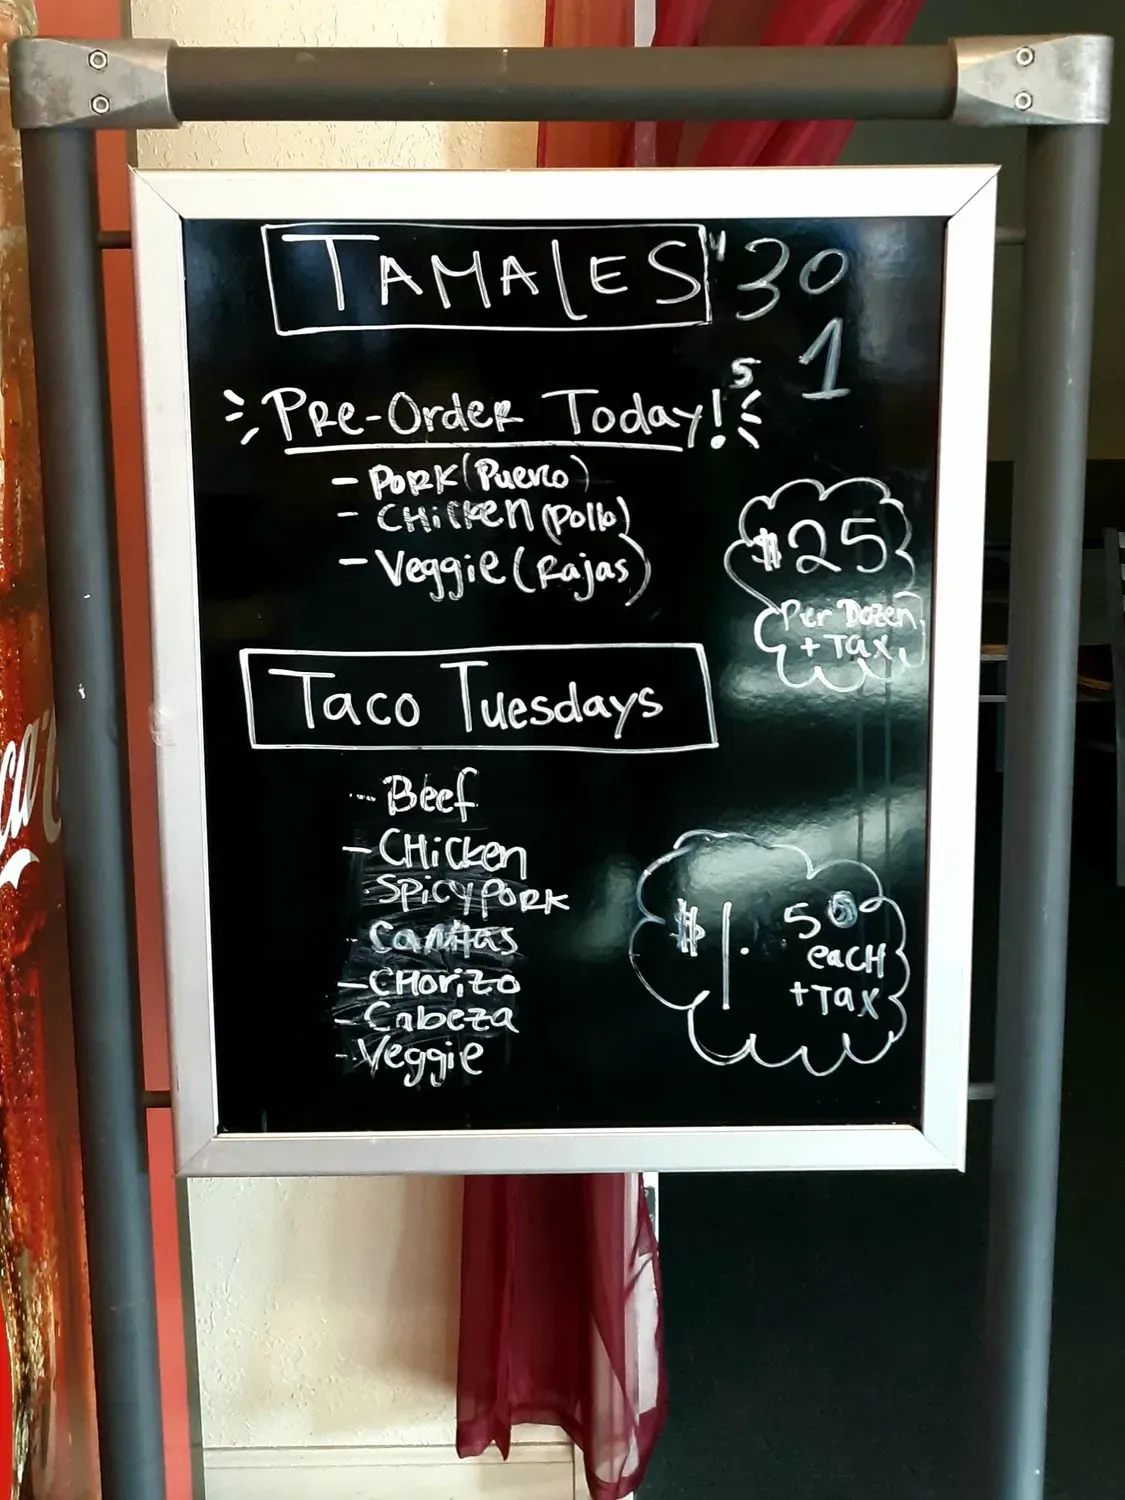 TAMALES "30
5 1
Pre-Order Today!
- Pork (Puerco)
- CHicken (Pollo)
- Veggie (Rajas)
$25
Per Dozen
+ Tax
Taco Tuesdays
- Beef
- CHicken
Spicy Pork
- Carnitas
- CHorizo
- Cabeza
- Veggie
$1.50
eacH
+ Tax